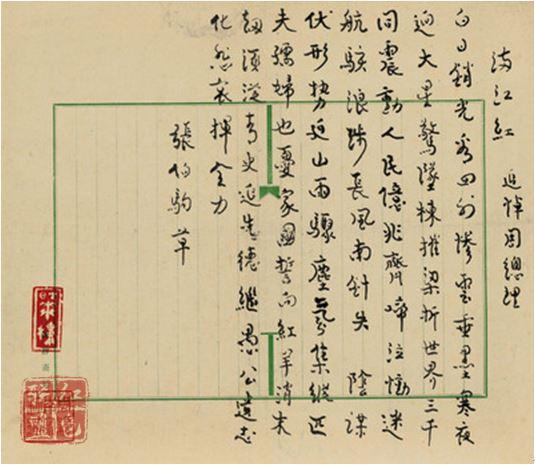 滿江紅 追悼周總理
白日銷光看四外慘雲垂墨寒夜
迥大星驚墜棟摧梁折世界三千
同震動人民億兆齊啼泣慟迷
航駭浪跨長風南針失 陰謀
伏形勢近山雨驟塵氛集縱匹
夫孺婦也憂家國誓向紅羊消末
劫須從青史追先德繼愚公遺志
化悲哀揮全力
張伯駒草